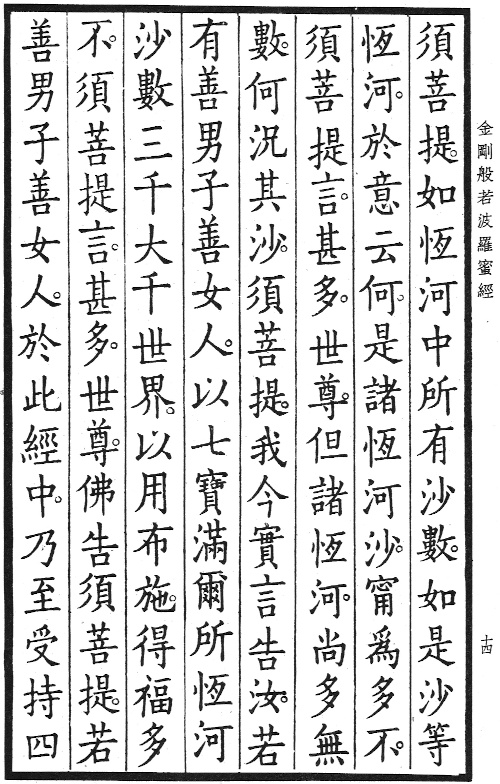 金剛般若波羅蜜經
十四
須菩提。如恆河中所有沙數。如是沙等
恆河。於意云何。是諸恆河沙。甯爲多不。
須菩提言。甚多。世尊。但諸恆河。尚多無
數。何況其沙。須菩提。我今實言告汝。若
有善男子善女人。以七寶滿爾所恆河
沙數三千大千世界。以用布施。得福多
不。須菩提言。甚多。世尊。佛告須菩提。若
善男子善女人。於此經中。乃至受持四